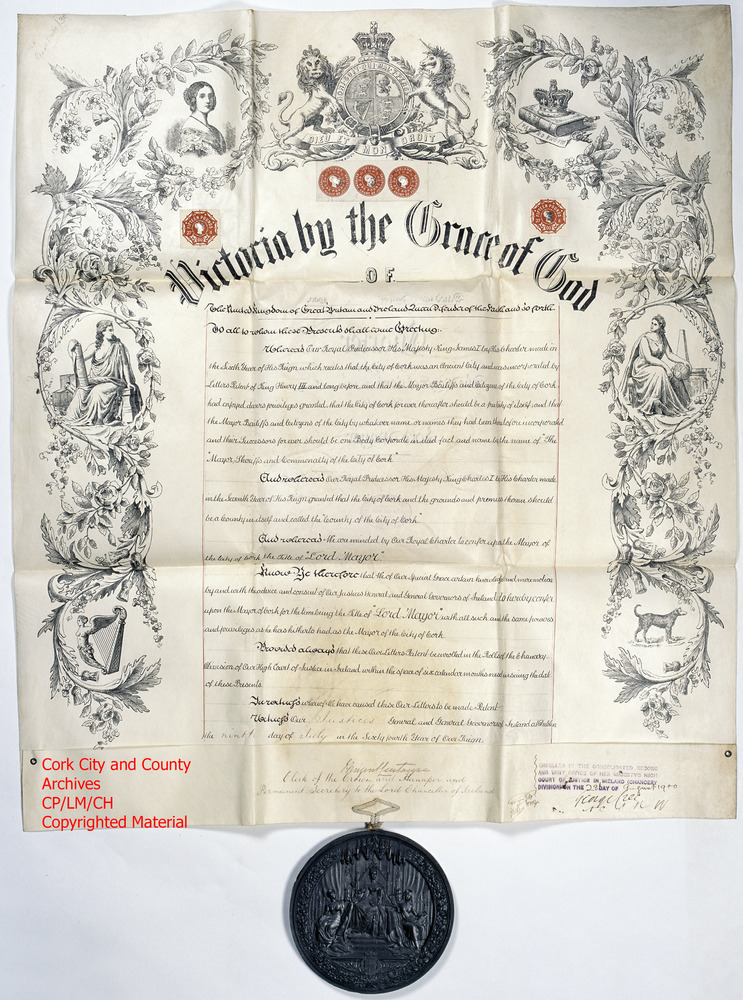 DIEU ET MON DROIT
Victoria by the Grace of God
OF
The United Kingdom of Great Britain and Ireland Queen Defender of the Faith and so forth.
To all to whom these Presents shall come Greeting:
Whereas Our Royal Predecessor His Majesty King James I by His Charter made in
the Sixth Year of His Reign which recites that the City of Cork was an Ancient City and was incorporated by
Letters Patent of King Henry III and long before, and that the Mayor Bailiffs and Citizens of the City of Cork
had enjoyed divers privileges granted that the City of Cork for ever thereafter should be a City of itself and that
the Mayor Bailiffs and Citizens of the City by whatever name or names they had been theretofore incorporated
and their Successors for ever should be one Body Corporate in deed fact and name by the name of "The
"Mayor, Sheriffs and Commonalty of the City of Cork"
And whereas Our Royal Predecessor His Majesty King Charles I by His Charter made
in the Seventh Year of His Reign granted that the City of Cork and the grounds and premises therein should
be a County in itself and called the "County of the City of Cork"
And whereas We are minded by Our Royal Charter to confer upon the Mayor of
the City of Cork the Title of "Lord Mayor"
Know Ye therefore that We of Our Special Grace certain knowledge and mere motion
by and with the advice and consent of Our Justices General and General Governors of Ireland do hereby confer
upon the Mayor of Cork for the time being the Title of "Lord Mayor" with all such and the same powers
and privileges as he has hitherto had as the Mayor of the City of Cork.
Provided always that these Our Letters Patent be enrolled in the Rolls of the Chancery
Division of Our High Court of Justice in Ireland within the space of six calendar months next ensuing the date
of these Presents.
In witness whereof We have caused these Our Letters to be made Patent
Witness Our Justices General and General Governors of Ireland at Dublin
the ninth day of July in the Sixty fourth Year of Our Reign
Clerk of the Crown and Hanaper and
Permanent Secretary to the Lord Chancellor of Ireland
ENROLLED IN THE CONSOLIDATED RECORD
AND WRIT OFFICE OF HER MAJESTY'S HIGH
COURT OF JUSTICE IN IRELAND (CHANCERY
DIVISION) ON THE 23 DAY OF August 1900
Cork City and County
Archives
CP/LM/CH
Copyrighted Material